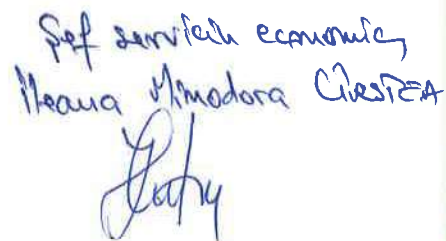 Șef serviciu economic,
Ileana Minodora